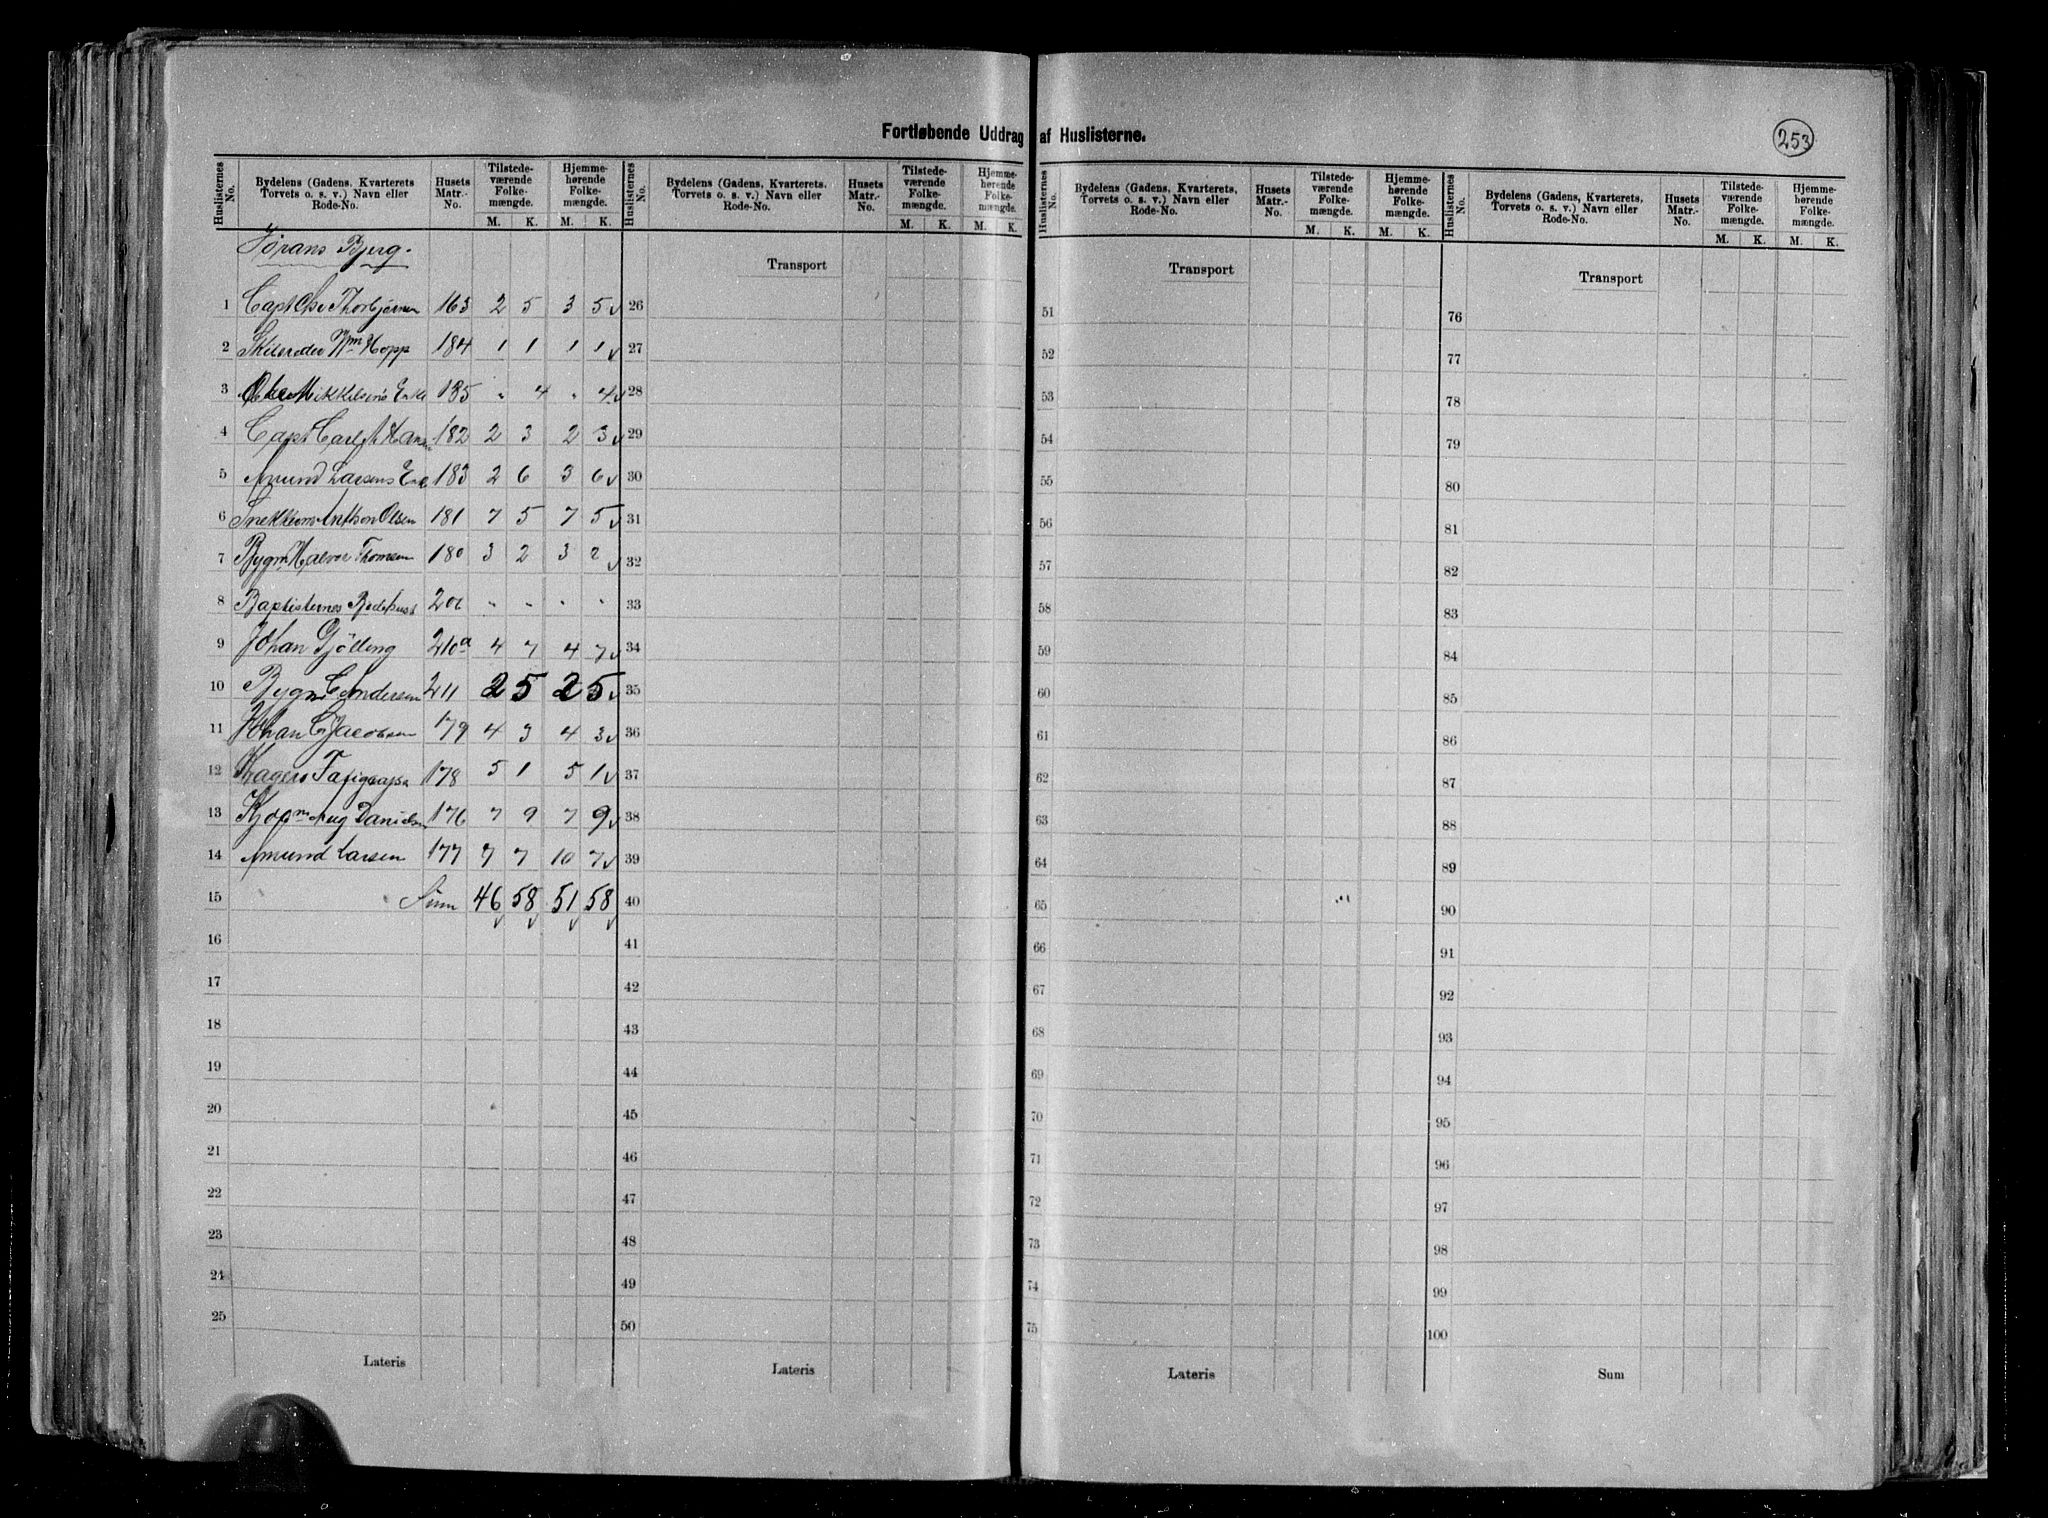 Fortløbende Uddrag af Huslisterne.
253
Huslisternes No. | Bydelens (Gadens, Kvarterets Torvets o. s. v.) Navn eller Rode-No. | Husets Matr.-No. | Tilstedeværende Folkemængde. M. K. | Hjemmehørende Folkemængde. M. K.
Jørans Bjerg.
1 Capt Ole Thorbjørnsen 163 2 5 3 5
2 Hopp 184 1 1 1 1
3 Mikkelsens Enke 185 " 4 " 4
4 Capt Carl Hansen 182 2 3 2 3
5 Amund Larsens Enke 183 2 6 3 6
6 Anthon Olsen 181 7 5 7 5
7 Bygm. Halvor Thomsen 180 3 2 3 2
8 Baptisternes Bedehus 206 " " " "
9 Johan Gjölling 210a 4 7 4 7
10 Bygm C Andersen 211 2 5 2 5
11 Johan C Jacobsen 179 4 3 4 3
12 178 5 1 5 1
13 Kjøpm Aug Danielsen 176 7 9 7 9
14 Amund Larsen 177 7 7 10 7
15 Sum 46 58 51 58
16
17
18
19
20
21
22
23
24
25
Lateris
Huslisternes No. | Bydelens (Gadens, Kvarterets, Torvets o. s. v.) Navn eller Rode-No. | Husets Matr.-No. | Tilstedeværende Folkemængde. M. K. | Hjemmehørende Folkemængde. M. K.
Transport
26
27
28
29
30
31
32
33
34
35
36
37
38
39
40
41
42
43
44
45
46
47
48
49
50
Lateris
Huslisternes No. | Bydelens (Gadens, Kvarterets, Torvets o. s. v.) Navn eller Rode-No. | Husets Matr.-No. | Tilstedeværende Folkemængde. M. K. | Hjemmehørende Folkemængde. M. K.
Transport
51
52
53
54
55
56
57
58
59
60
61
62
63
64
65
66
67
68
69
70
71
72
73
74
75
Lateris
Huslisternes No. | Bydelens (Gadens, Kvarterets, Torvets o. s. v.) Navn eller Rode-No. | Husets Matr.-No. | Tilstedeværende Folkemængde. M. K. | Hjemmehørende Folkemængde. M. K.
Transport
76
77
78
79
80
81
82
83
84
85
86
87
88
89
90
91
92
93
94
95
96
97
98
99
100
Sum